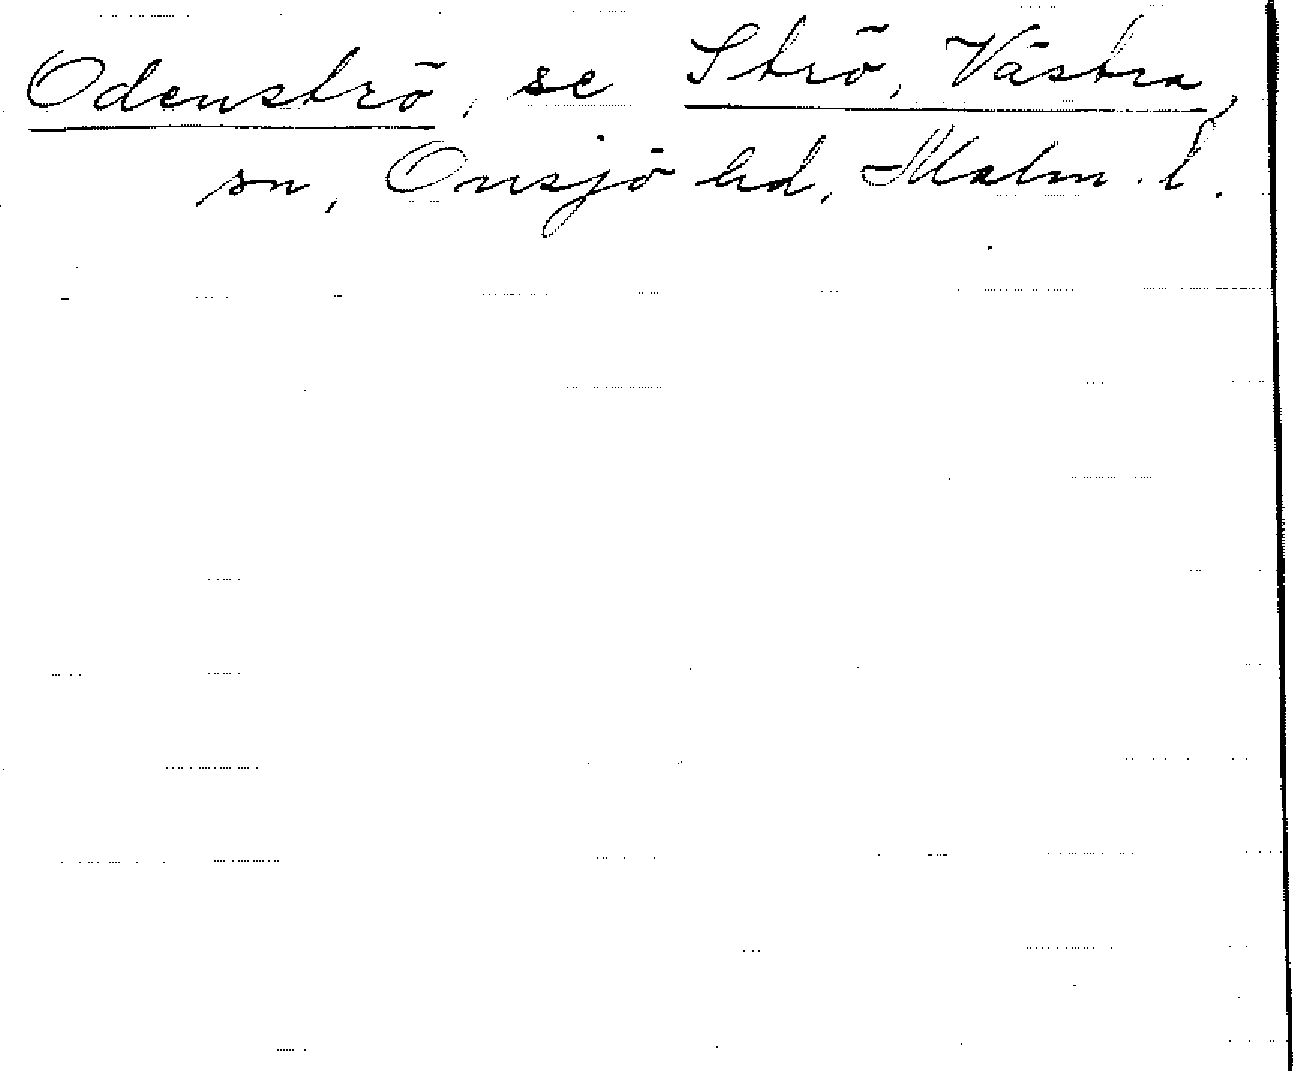 Odenströ, se Strö, Västra,
sn, Onsjö hd, Malm. l.